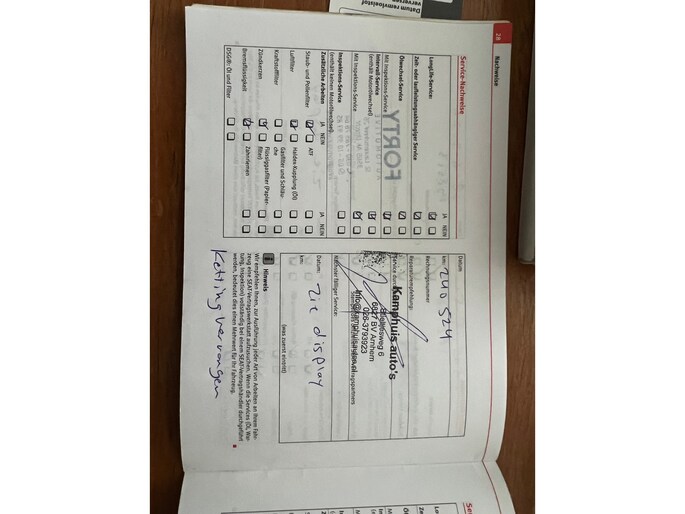 Datum remvloeistof
verversen
28
Nachweise
Service-Nachweise
JA NEIN
LongLife-Service:
Zeit- oder laufleistungsabhängiger Service
Ölwechsel-Service
Mit Inspektions-Service
Intervall-Service
(enthält Motorölwechsel)
Mit Inspektions-Service
Inspektions-Service
(enthält keinen Motorölwechsel):
Zusätzliche Arbeiten JA NEIN JA NEIN
Staub- und Pollenfilter ATF
Luftfilter Haldex-Kupplung (Öl)
Kraftstofffilter Gasfilter und Schläu-
che
Zündkerzen Flüssiggasfilter (Papier-
filter)
Bremsflüssigkeit Zahnriemen
DSG®: Öl und Filter
FORTY
Datum
km: 240 524
Rechnungsnummer
Reparaturempfehlung:
Kamphuis auto's
6827 BV Arnhem
026-3793923
Nächster fälliger Service:
Datum: zie display
km:
(was zuerst eintritt)
Hinweis
Wir empfehlen Ihnen, zur Ausführung jeder Art von Arbeiten an Ihrem Fahr-
zeug eine SEAT-Vertragswerkstatt aufzusuchen. Wenn die Services (Öl, War-
tung, Inspektion) vollständig bei einem SEAT-Vertragshändler durchgeführt
werden, bedeutet dies einen Mehrwert für Ihr Fahrzeug.
Ketting vervangen